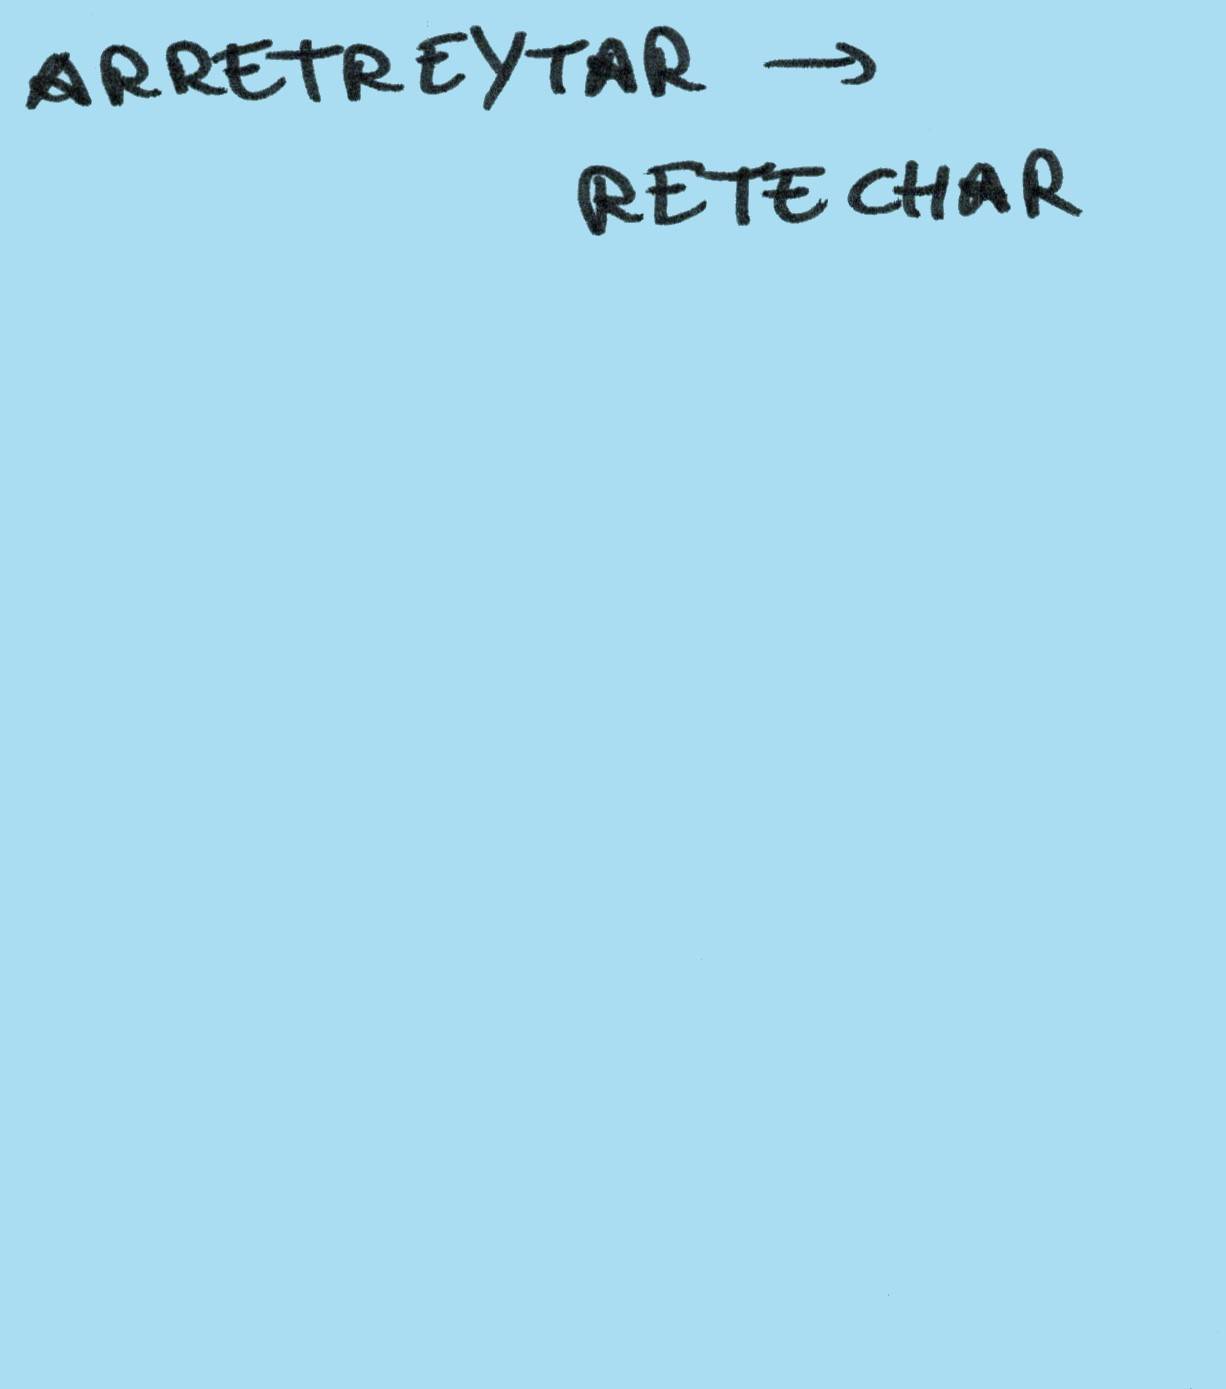 ARRETREYTAR →
RETECHAR